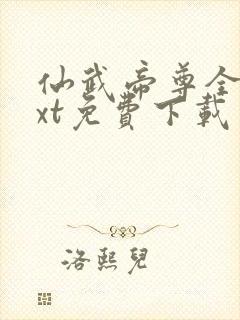 仙武帝尊全
xt免費下載
洛熙兒